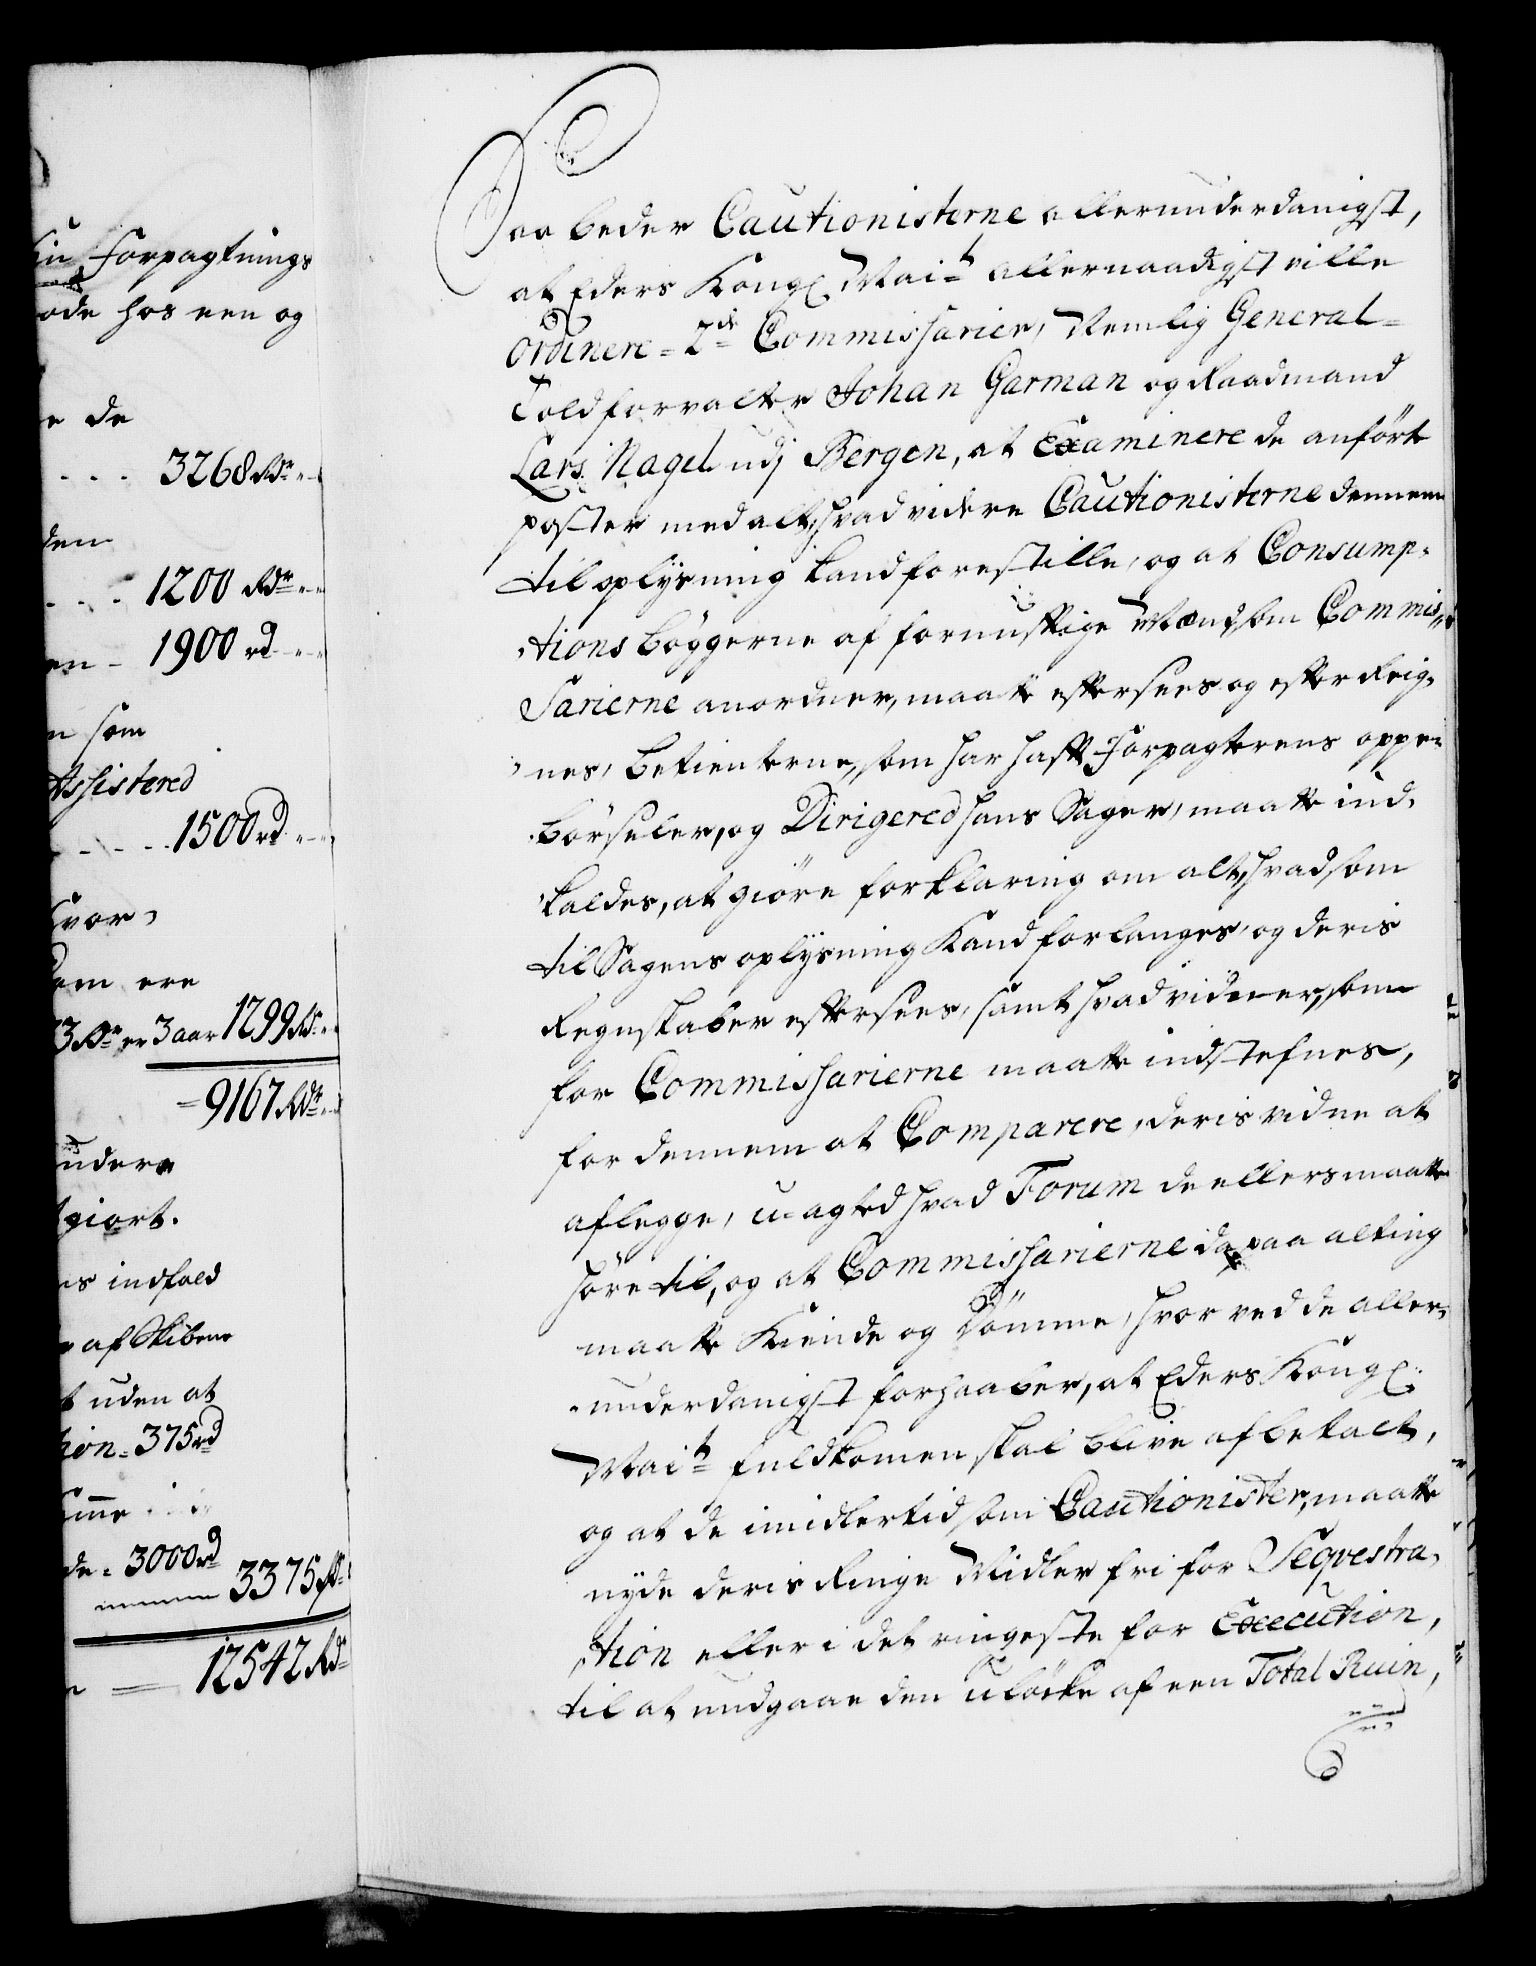 Forpagtnings
ode hos een og
de
3268 Rdr
den
1200 Rdr
en - 1900 rd
som
Assistered
1500 rd
hvor,
dem ere
3 Rdr er 3 aar 1299 Rdr
= 9167 Rdr
undere
giort.
indfald
af Skibene
uden at
tion = 375 rd
de = 3000 rd
3375 Rd
12542 Rd
Saa beder Cautionisterne allerunderdanigst,
at Eders Kongl Mait allernaadigst ville
Ordinere = 2de Commissarier, Nemlig General-
Toldforvalter Johan Garman og Raadmand
Lars Nagel udj Bergen, at Examinere de anførte
poster med alt, hvad videre Cautionisterne dennem
til oplysning kand forestille, og at Consump-
tions bøggerne af fornufftige Mænd som Commis-
sarierne anordner, maatte efftersees og effter Reig-
nes, Betienterne, som har hafft Forpagterens oppe-
børseler, og Dirigered hans Sager, maatte ind-
kaldes, at giøre forklaring om alt, hvad som
til Sagens oplysning Kand forlanges, og deris
Regnskaber efftersees, samt hvad vidner, som
for Commissarierne maatte indstefnes,
for dennem at Comparere, deris vidne at
aflegge, u-agted hvad Forum de ellers maatte
høre til, og at Commissarierne da paa alting
maatte Kiende og Dømme, hvor ved de aller-
underdanigst forhaaber, at Eders Kongl:
Mait fuldkomen skal blive afbetalt,
og at de imidlertid som Cautionister, maatte
nyde deris Ringe Midler fri for Seqvestra-
tion eller i det ringeste for Execution,
til at undgaae den uløcke af een Total Ruin,